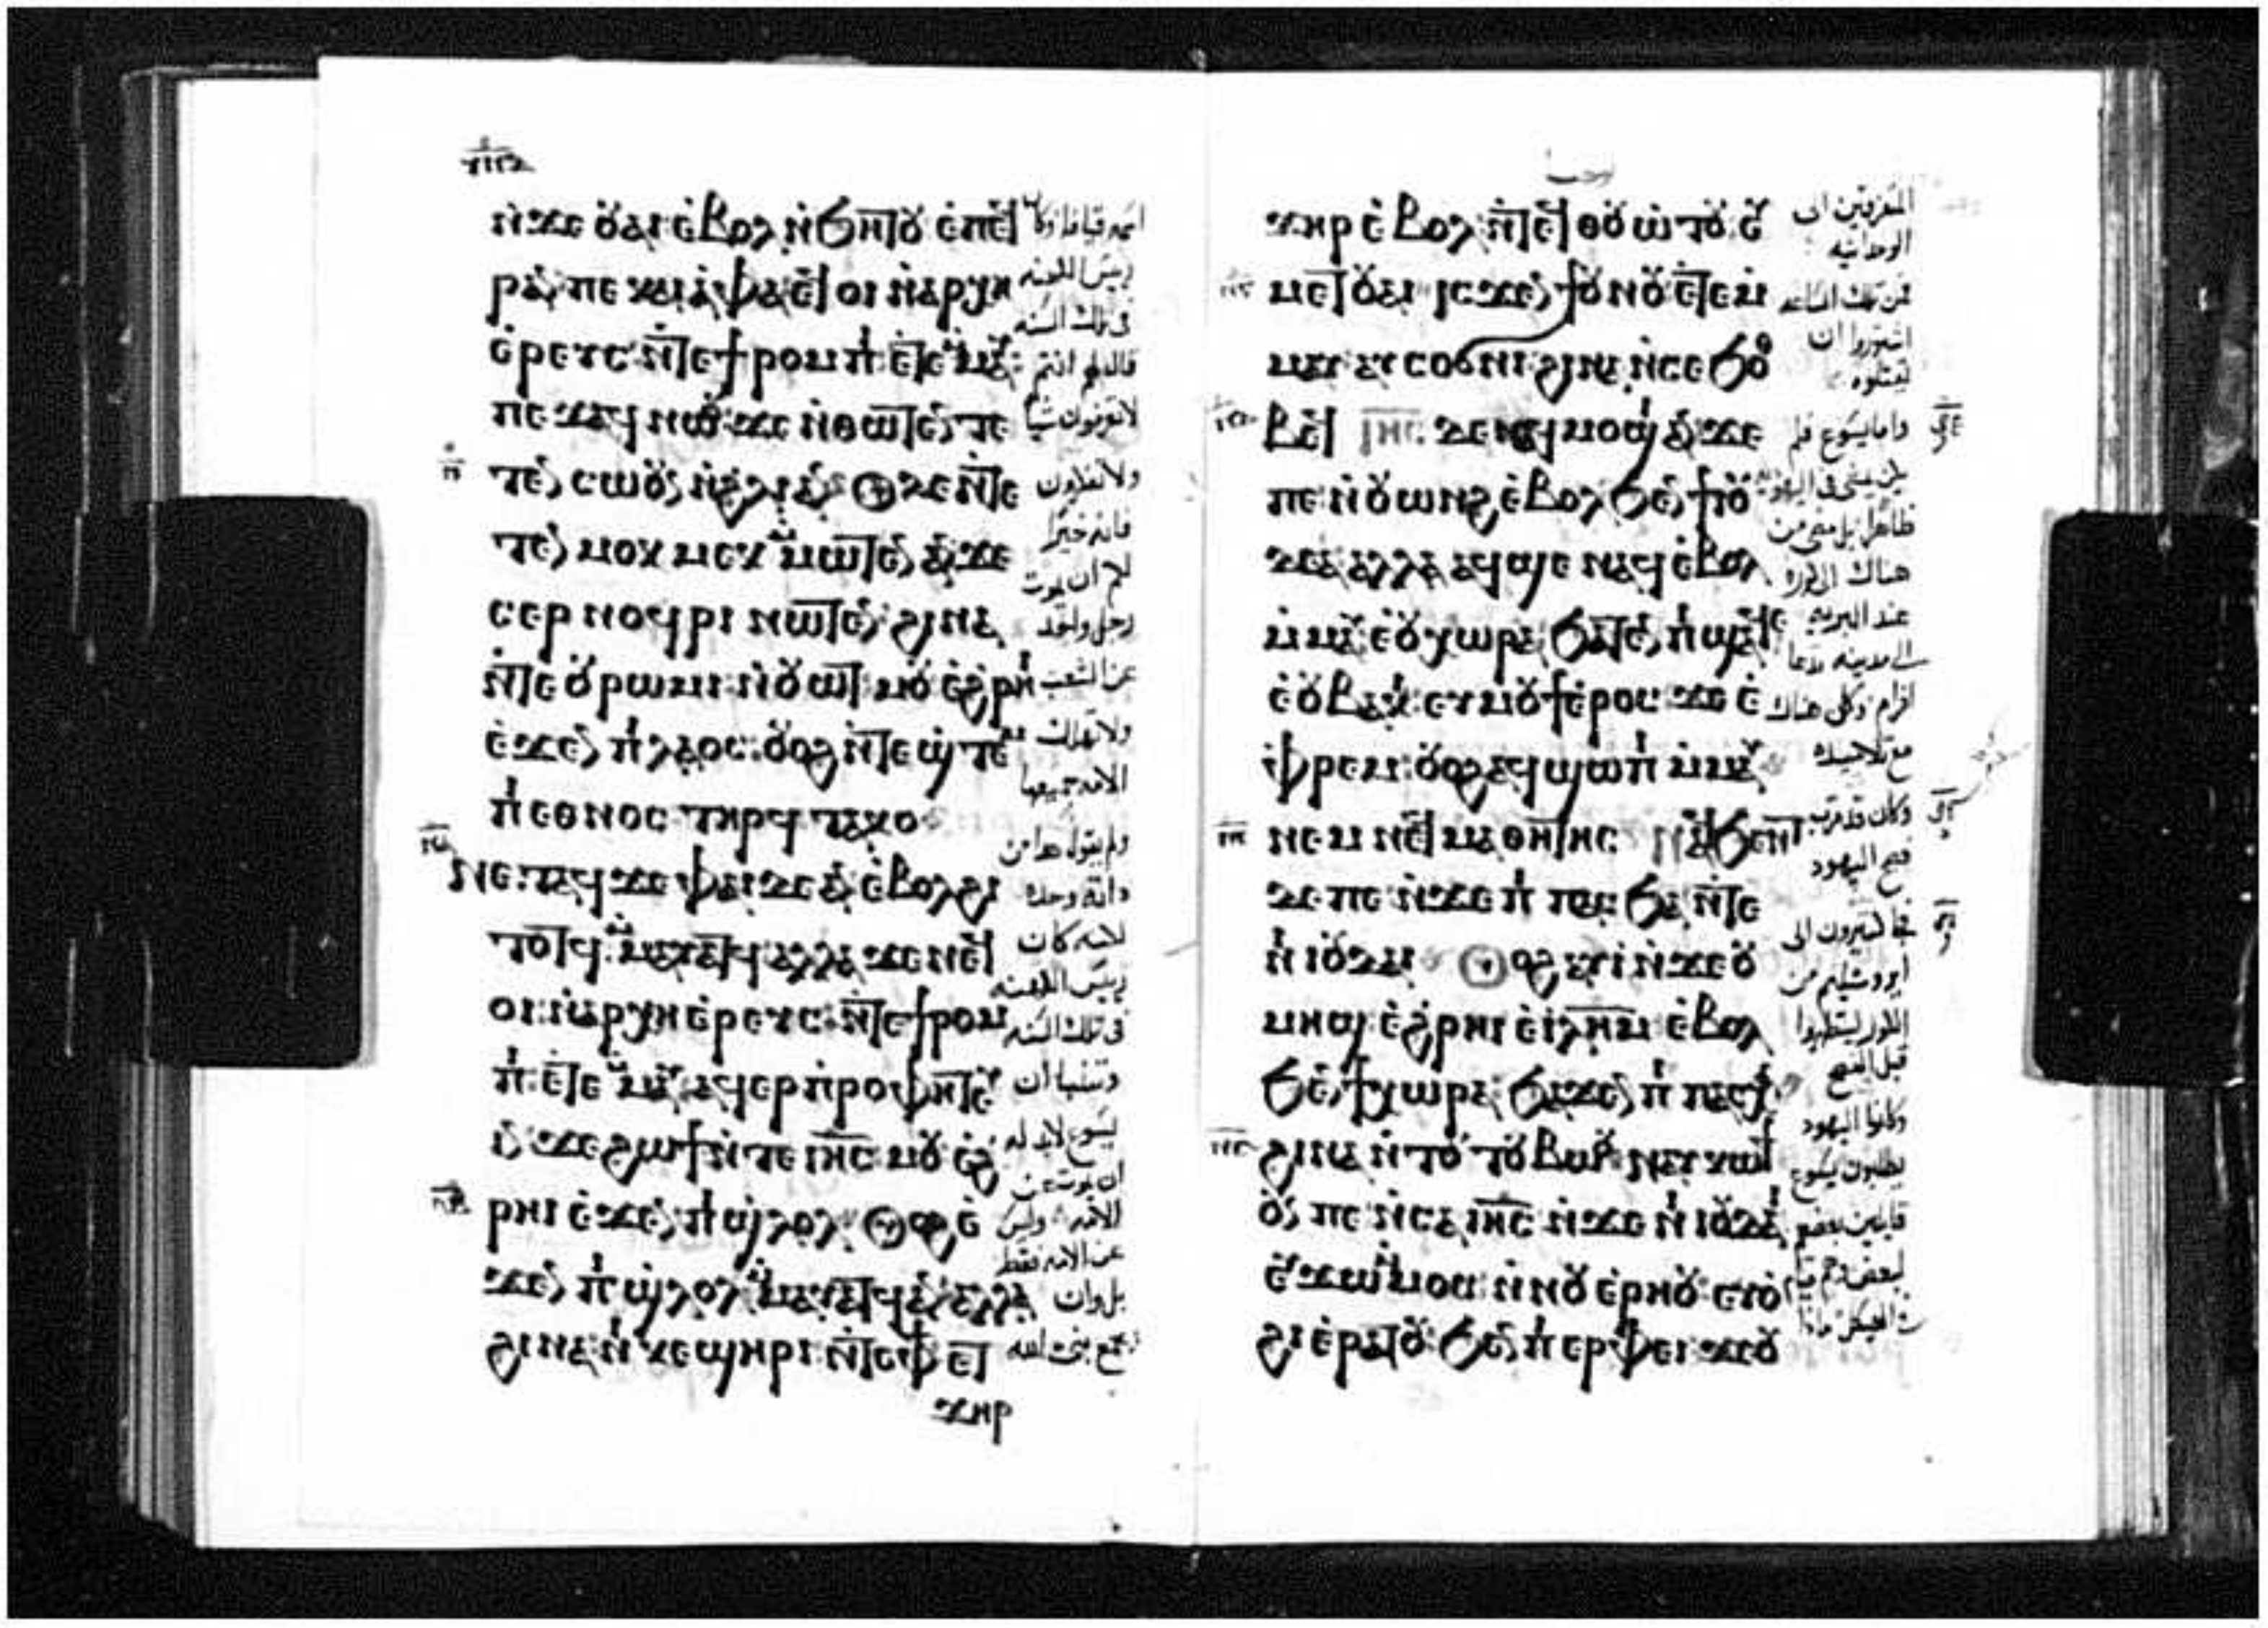 ⲛ̀ϫⲉ ⲟⲩⲁⲓ ⲉ̀ⲃⲟⲗ ⲛ̀ϧⲏⲧⲟⲩ ⲉ̀ⲡⲉϥ
ⲣⲁⲛ ⲡⲉ ⲕⲁⲓⲁⲫⲁ ⲉϥⲟⲓ ⲛ̀ⲁⲣⲭⲏ
ⲉ̀ⲣⲉⲩⲥ ⲛ̀ⲧⲉ ϯⲣⲟⲙⲡⲓ ⲉ̀ⲧⲉⲙⲙⲁⲩ
ⲡⲉϫⲁϥ ⲛⲱⲟⲩ ϫⲉ ⲛ̀ⲑⲱⲧⲉⲛ ⲧⲉ
ⲧⲉⲛ ⲥⲱⲟⲩⲛ ⲛ̀ϩⲗⲓ ⲁⲛ ⲟⲩⲇⲉ ⲛ̀ⲧⲉ
ⲧⲉⲛ ⲙⲟⲕⲙⲉⲕ ⲙ̀ⲙⲱⲧⲉⲛ ⲁⲛ ϫⲉ
ⲥⲉⲣ ⲛⲟϥⲣⲓ ⲛⲱⲧⲉⲛ ϩⲓⲛⲁ
ⲛ̀ⲧⲉ ⲟⲩⲣⲱⲙⲓ ⲛ̀ⲟⲩⲱⲧ ⲙⲟⲩ ⲉ̀ϩⲣⲏⲓ
ⲉ̀ϫⲉⲛ ⲡⲓⲗⲁⲟⲥ ⲟⲩⲟϩ ⲛ̀ⲧⲉϣⲧⲉⲙ
ⲡⲓⲉⲑⲛⲟⲥ ⲧⲏⲣϥ ⲧⲁⲕⲟ
ⲛⲉⲧⲁϥϫⲉ ⲫⲁⲓ ⲇⲉ ⲁⲛ ⲉ̀ⲃⲟⲗ ϩⲓ
ⲧⲟⲧϥ ⲙ̀ⲙⲁⲩⲁⲧϥ ⲁⲗⲗⲁ ϫⲉ ⲛⲉϥ
ⲟⲓ ⲛ̀ⲁⲣⲭⲏⲉⲣⲉⲩⲥ ⲛ̀ⲧⲉ ϯⲣⲟⲙ
ⲡⲓ ⲉ̀ⲧⲉⲙⲙⲁⲩ ⲁϥⲉⲣⲡⲣⲟⲫⲏⲧⲉⲩ
ⲓⲛ ϫⲉ ϩⲱϯ ⲛ̀ⲧⲉ ⲓⲏⲥ ⲙⲟⲩ ⲉ̀ϩ
ⲣⲏⲓ ⲉ̀ϫⲉⲛ ⲡⲓϣⲗⲟⲗ ⲟⲩⲟϩ ⲉ̀
ϫⲉⲛ ⲡⲓϣⲗⲟⲗ ⲙ̀ⲙⲁⲩⲁⲧϥ ⲁⲛ ⲁⲗⲗⲁ
ϩⲓⲛⲁ ⲛⲓⲕⲉϣⲏⲣⲓ ⲛ̀ⲧⲉ ⲫϯ ⲉⲧ
ϫⲏⲣ
اسمه قيافا وكان
رييس الكهنه
فى تلك السنه
قال لهم انتم
لا تعرفون شيا
ولا تفكرون
فانه خير
لكم ان يموت
رجل واحد
عن الشعب
ولا تهلك
الامه جميعها
ولم يقول هذا من
ذاته وحده
لانه كان
رييس الكهنه
فى تلك السنه
وتنبا ان
يسوع لابد له
ان يموت عن
الامه وليس
عن الامه فقط
بل وان
يجمع بنى الله
ϫⲏⲣ ⲉ̀ⲃⲟⲗ ⲛ̀ⲧⲉϥⲑⲟⲩⲱⲧⲟⲩ ⲉⲩ
ⲙⲉⲧⲟⲩⲁⲓ ⲓⲥϫⲉⲛ ϯⲟⲩⲛⲟⲩ ⲉ̀ⲧⲉⲙ
ⲙⲁⲩ ⲁⲩⲥⲟϭⲛⲓ ϩⲓⲛⲁ ⲛ̀ⲥⲉϧⲟⲑ
ⲃⲉϥ ⲓⲏⲥ ⲇⲉ ⲛⲁϥⲙⲟϣⲓ ⲁⲛ ϫⲉ
ⲡⲉ ⲛ̀ⲟⲩⲱⲛϩ ⲉ̀ⲃⲟⲗ ϧⲉⲛ ϯⲓⲟⲩ
ⲇⲉⲁ ⲁⲗⲗⲁ ⲁϥϣⲉ ⲛⲁϥ ⲉ̀ⲃⲟⲗ
ⲙ̀ⲙⲁⲩ ⲉ̀ⲟⲩⲭⲱⲣⲁ ϧⲁⲧⲉⲛ ⲡⲓϣⲁϥⲉ
ⲉ̀ⲟⲩⲃⲁⲕⲓ ⲉⲩⲙⲟⲩϯ ⲉ̀ⲣⲟⲥ ϫⲉ ⲉ̀
ⲫⲣⲉⲙ ⲟⲩⲟϩ ⲁϥϣⲱⲡⲓ ⲙ̀ⲙⲁⲩ
ⲛⲉⲙ ⲛⲉϥⲙⲁⲑⲏⲧⲏⲥ ⲛⲁϥϧⲉⲛⲧ
ⲇⲉ ⲡⲉ ⲛ̀ϫⲉ ⲡⲓⲡⲁⲥⲭⲁ ⲛ̀ⲧⲉ
ⲛⲓⲓⲟⲩⲇⲁⲓ ⲟⲩⲟϩ ⲁⲩⲓ̀ ⲛ̀ϫⲉ ⲟⲩ
ⲙⲏϣ ⲉ̀ϩⲣⲏⲓ ⲉ̀ⲓⲗⲏⲙ ⲉ̀ⲃⲟⲗ
ϧⲉⲛ ϯⲭⲱⲣⲁ ϧⲁϫⲉⲛ ⲡⲓⲡⲁⲥⲭⲁ
ϩⲓⲛⲁ ⲛ̀ⲧⲟⲩⲧⲟⲩⲃⲱⲟⲩ ⲛⲁⲩⲕⲱϯ
ⲟⲩⲛ ⲡⲉ ⲛ̀ⲥⲁ ⲓⲏⲥ ⲛ̀ϫⲉ ⲛⲓⲓⲟⲩⲇⲁⲓ
ⲉⲩϫⲱ ⲙ̀ⲙⲟⲥ ⲛ̀ⲛⲟⲩⲉ̀ⲣⲏⲟⲩ ⲉⲩⲟ̀
ϩⲓ ⲉ̀ⲣⲁⲧⲟⲩ ϧⲉⲛ ⲡⲓⲉⲣⲫⲉⲓ ϫⲉ ⲟⲩ
المتفرقين الى
الوحدانيه
فمن تلك الساعه
اشتوروا ان
يقتلوه
واما يسوع فلم
يكن يمشى فى اليهوديه
ظاهرا بل مضى من
هناك الى كوره
عند البريه
الى مدينه تدعا
افرام وكان هناك
مع تلاميذه
وكان قد قرب
فصح اليهود
فجا كثيرون الى
ايروشليم من
الكور ليتطهروا
قبل الفصح
وكانوا اليهود
يطلبون يسوع
قايلين بعضهم
لبعض وهم قيام
فى الهيكل ماذا